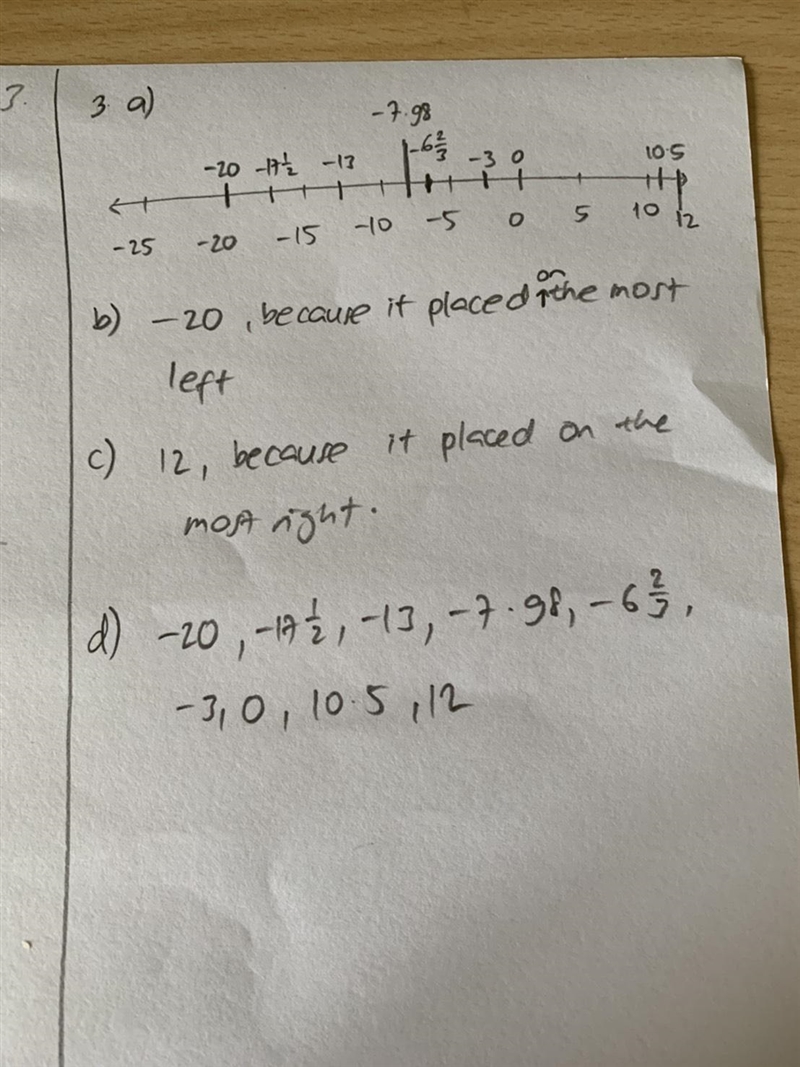 3.
3 a)
-7.98
-20 -17½ -13 -6⅔ -3 0 10.5
-25 -20 -15 -10 -5 0 5 10 12
b) -20, because it placed on the most
left
c) 12, because it placed on the
most right.
d) -20, -17½, -13, -7.98, -6⅔,
-3, 0, 10.5, 12